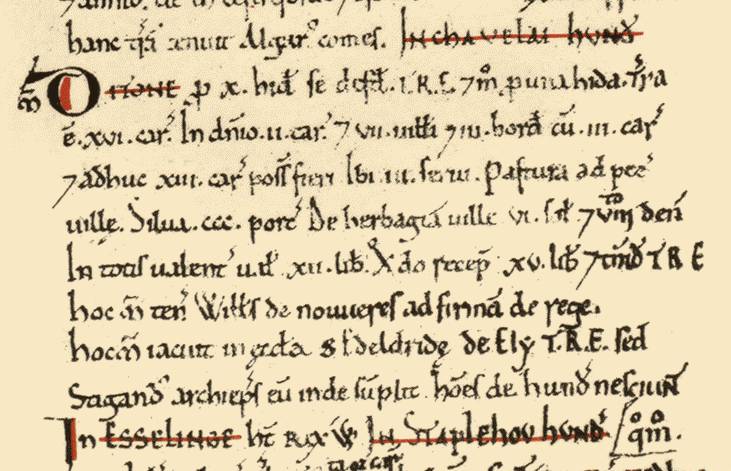 hanc trā tenuit Algar⁹ comes. In CHAVELAI HVND̃
m̃ Ditone p x. hid̃ se defd̃. T.R.E. 7 m̊ p una hida. Tr̃a
ē. xvi. car̃. In dn̄io. ii. car̃. 7 vii. uilłi 7 iii. bord̃ cū. iii. car̃
7 adhuc xiii. car̃ poss̄ fieri. Ibi. iii. serui. Pastura ad pec̃
uillę. Silua. ccc. porc̃ De herbagiā uillę vi. sol̃ 7 viii den̄
In totis ualent̃ uał .xii. lib̃. Qdo recep̃ xv. lib̃ 7 tn̄tď T R E
hoc m̃ ten̄ Wiłłs de nouueres ad firmā de rege.
hoc m̃ iacuit in ęccła S Ædeldridę de Ely T.R.E. sed
Stigand⁹ archiep̄s eū inde sūpsit hoēs de hund̃ nesciunt
In ESSELINGE hт̃ rex W̃ In Staplehou HVND̃ q̊m̊.